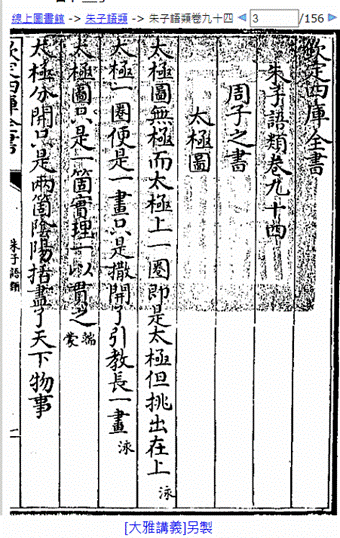 線上圖書館 -> 朱子語類 -> 朱子語類卷九十四
3 /156
欽定四庫全書
朱子語類卷九十四
周子之書
太極圖
太極圖無極而太極上一圈即是太極但挑出在上 泳
太極一圈便是一畫只是撒開了引教長一畫 泳
太極圖只是一箇實理一以貫之 端蒙
太極分開只是兩箇陰陽括盡了天下物事
欽定四庫全書
朱子語類
[大雅講義]另製